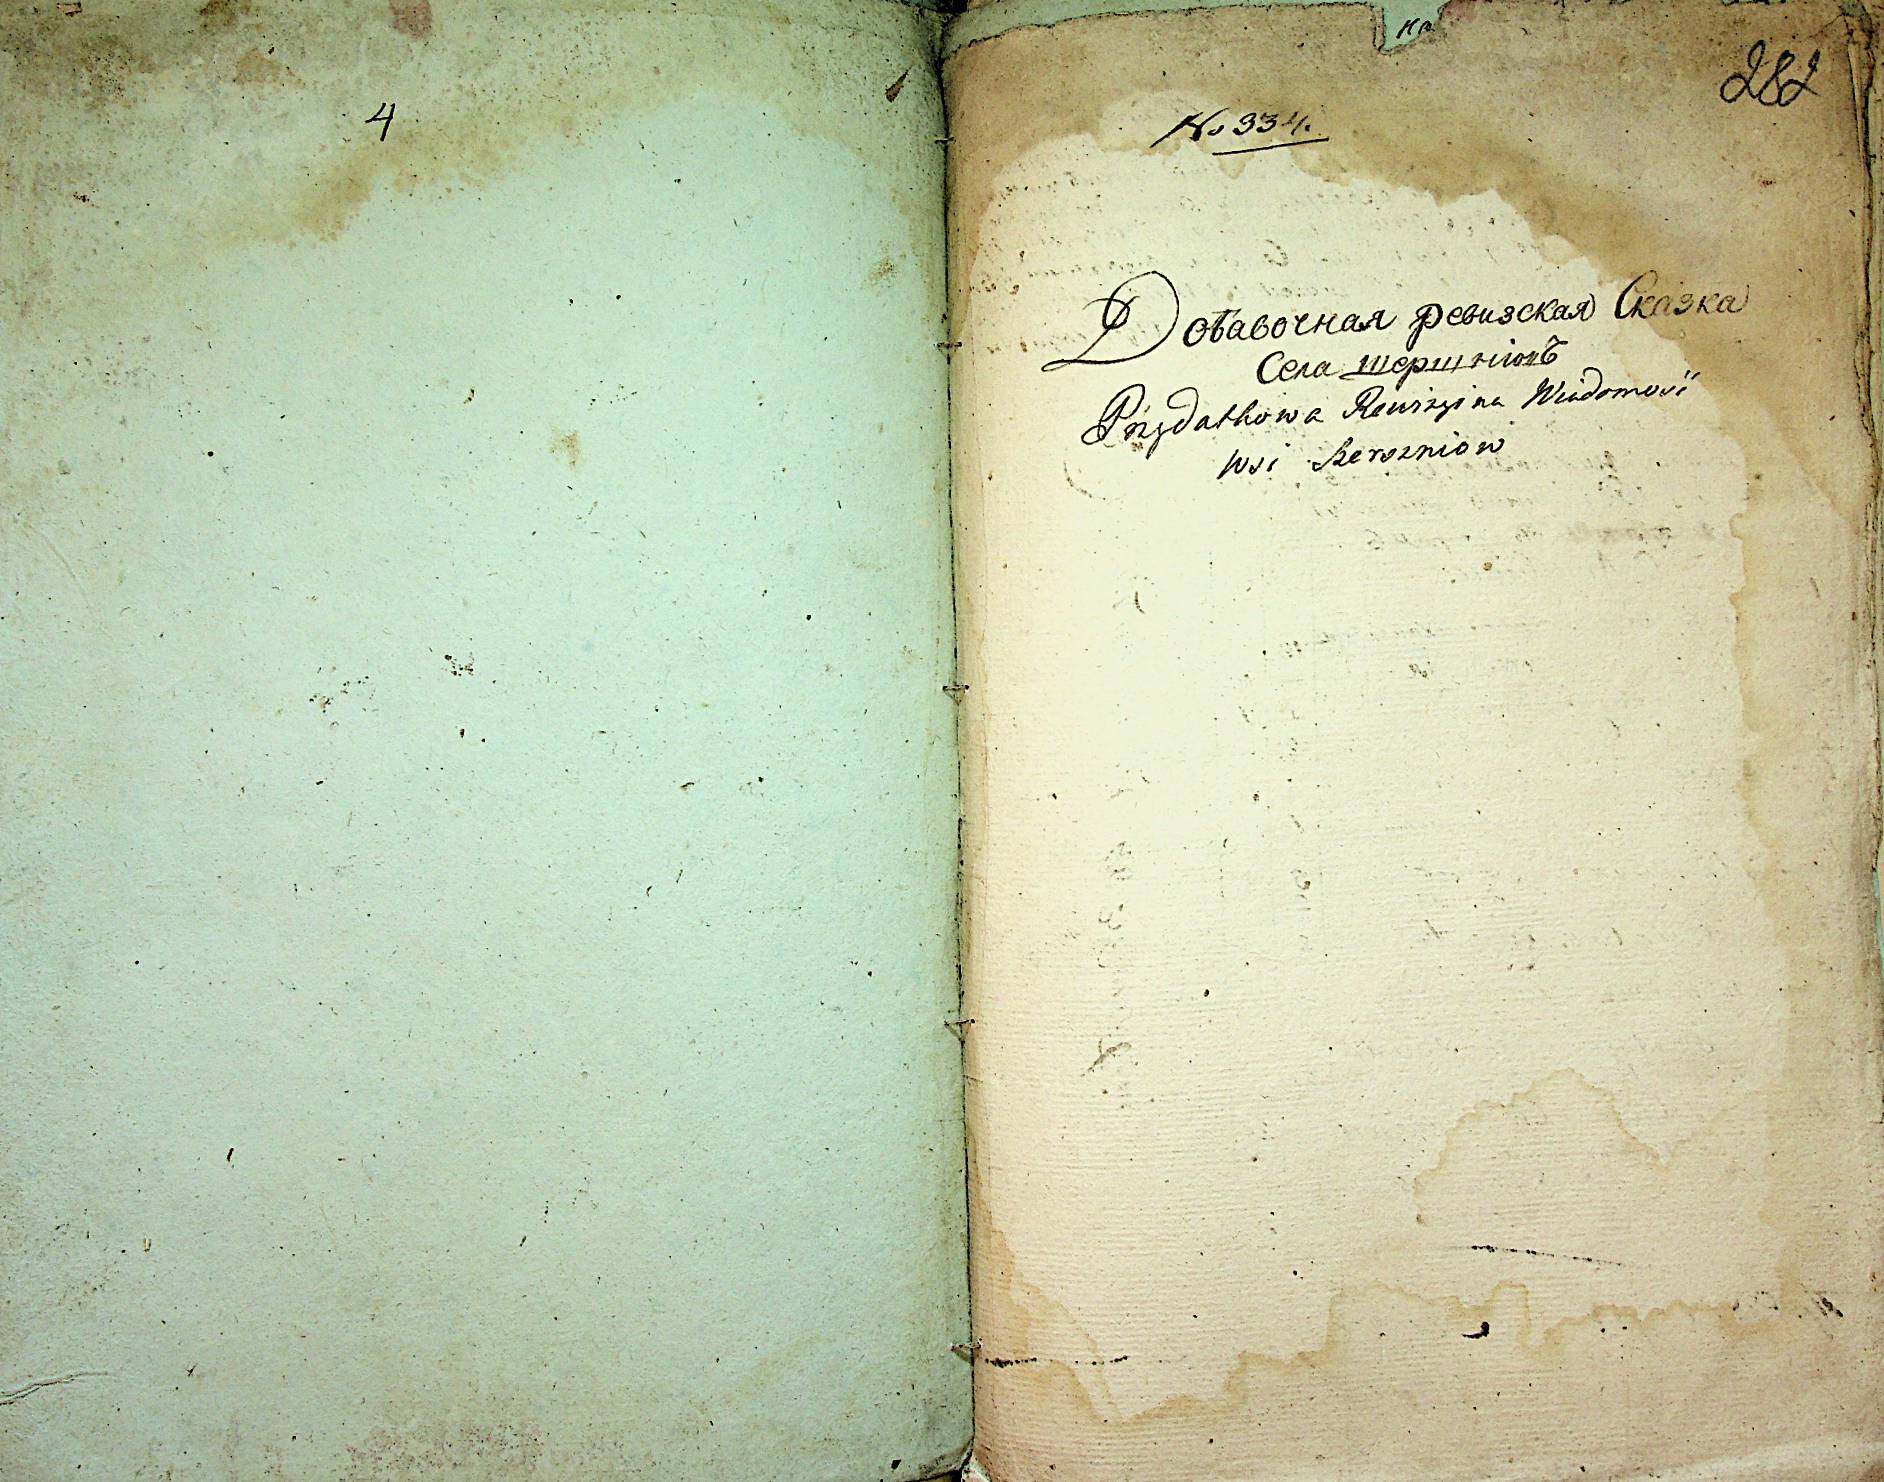 4
на
282
№ 334.
Добавочная ревизская Сказка
Села шершніовъ
Przydatkowa Rewizyina Wiadomość
wsi Szerszniow